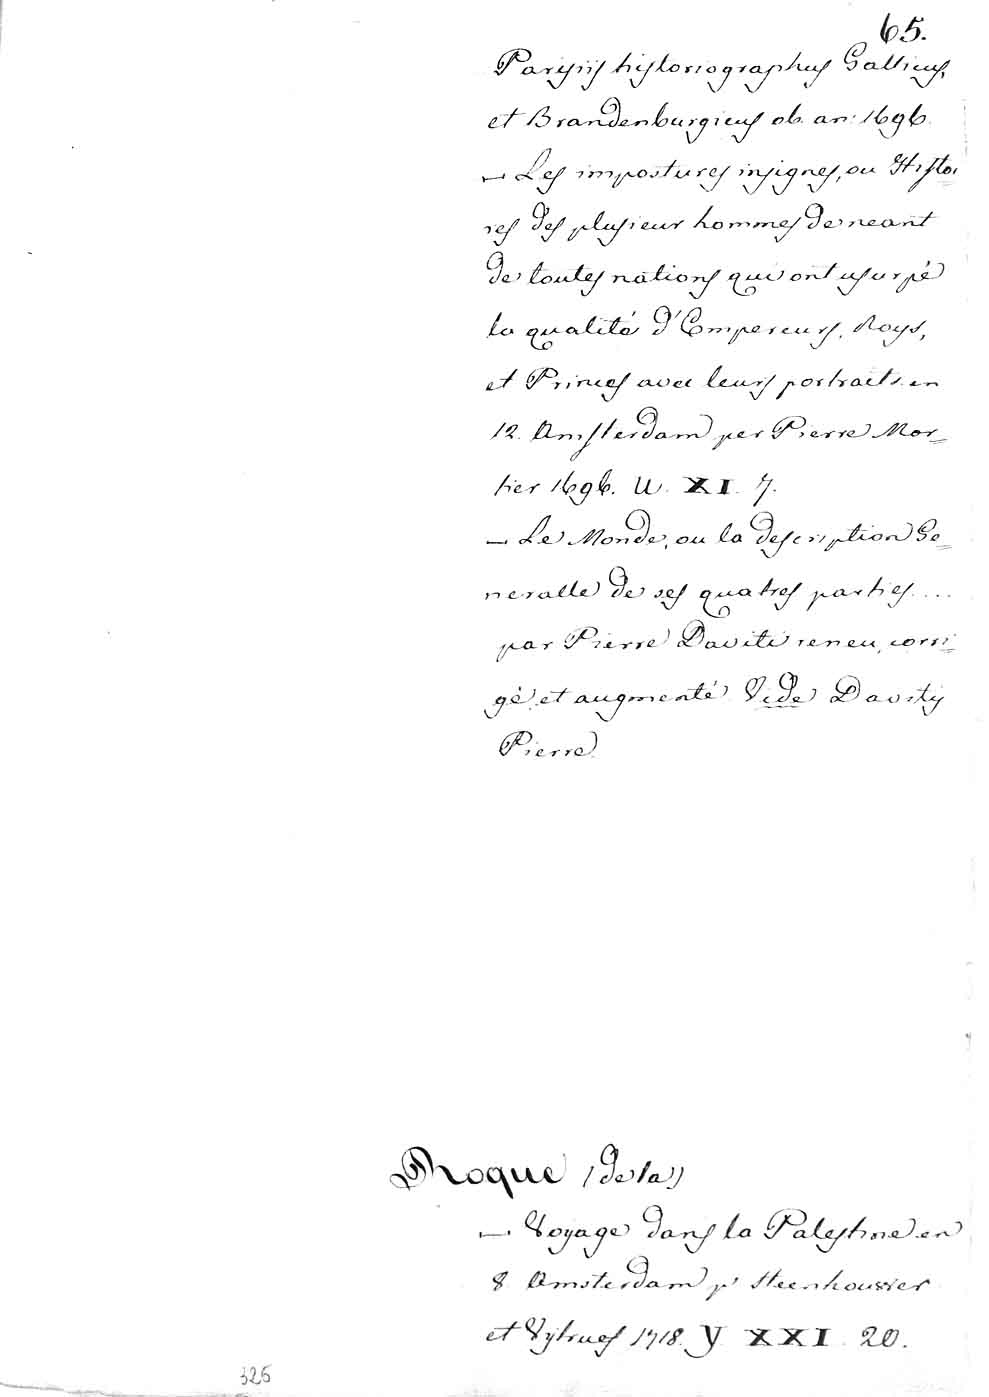 65.
Parisiis historiographus Gallicus,
et Brandenburgicus ob. an: 1696.
— Les impostures insignes, ou Histoi
res des plusieur hommes de neant
de toutes nations qui ont usurpé
la qualité d'Empereurs, Roys,
et Princes avec leurs portraits. en
12. Amsterdam per Pierre Mor=
tier 1696. U. XI. 7.
— Le Monde, ou la description Ge=
neralle de ses quatres parties....
par Pierre Daviti reneu, corri=
gé, et augmenté. Vide Davity
Pierre.
Roque (de la)
— Voyage dans la Palestine en
8 Amsterdam p' Steenhouwer
et Vytruef 1718. Y XXI. 20.
326